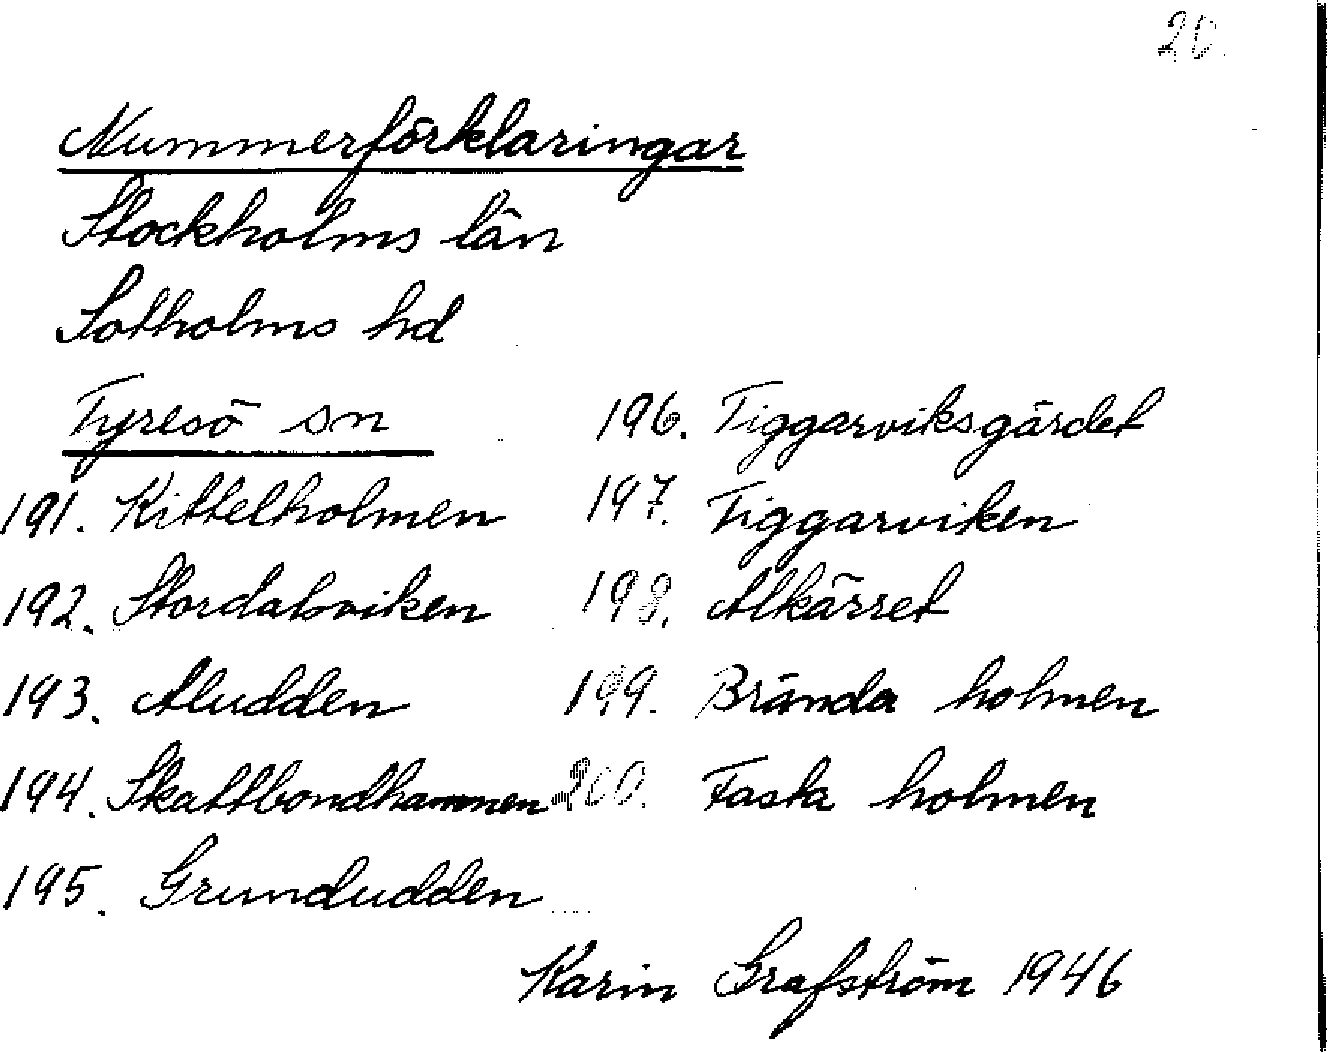 20.
Nummerförklaringar
Stockholms län
Sotholms hd
Tyresö sn
191. Kittelholmen
192. Stordalsviken
193. Aludden
194. Skattbondhamnen
195. Grundudden
196. Tiggarviksgärdet
197. Tiggarviken
198. Alkärret
199. Brända holmen
200. Fasta holmen
Karin Grafström 1946